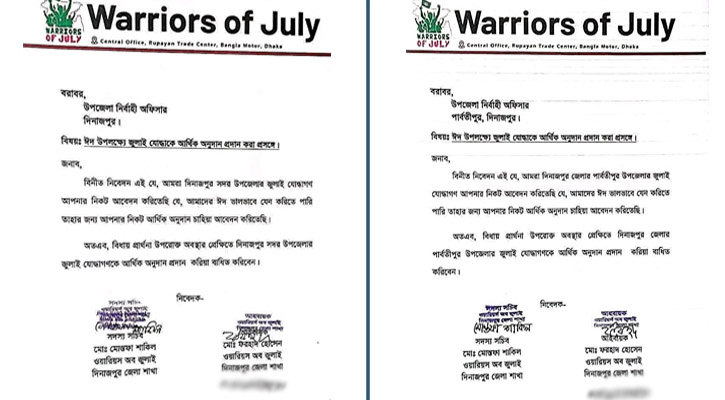 WARRIORS
OF JULY
Warriors of July
Central Office, Rupayan Trade Center, Bangla Motor, Dhaka
বরাবর,
উপজেলা নির্বাহী অফিসার
দিনাজপুর।
বিষয়ঃ ঈদ উপলক্ষ্যে জুলাই যোদ্ধাকে আর্থিক অনুদান প্রদান করা প্রসঙ্গে।
জনাব,
বিনীত নিবেদন এই যে, আমরা দিনাজপুর সদর উপজেলার জুলাই যোদ্ধাগণ
আপনার নিকট আবেদন করিতেছি যে, আমাদের ঈদ ভালভাবে যেন করিতে পারি
তাহার জন্য আপনার নিকট আর্থিক অনুদান চাহিয়া আবেদন করিতেছি।
অতএব, বিধায় প্রার্থনা উপরোক্ত অবস্থার প্রেক্ষিতে দিনাজপুর সদর উপজেলার
জুলাই যোদ্ধাগণকে আর্থিক অনুদান প্রদান করিয়া বাধিত করিবেন।
নিবেদক-
সদস্য সচিব
মোঃ মোস্তফা শাকিল
ওয়ারিয়স অব জুলাই
দিনাজপুর জেলা শাখা
আহবায়ক
মোঃ ফরহাদ হোসেন
ওয়ারিয়স অব জুলাই
দিনাজপুর জেলা শাখা
WARRIORS
OF JULY
Warriors of July
Central Office, Rupayan Trade Center, Bangla Motor, Dhaka
বরাবর,
উপজেলা নির্বাহী অফিসার
পার্বতীপুর, দিনাজপুর।
বিষয়ঃ ঈদ উপলক্ষ্যে জুলাই যোদ্ধাকে আর্থিক অনুদান প্রদান করা প্রসঙ্গে।
জনাব,
বিনীত নিবেদন এই যে, আমরা দিনাজপুর জেলার পার্বতীপুর উপজেলার জুলাই
যোদ্ধাগণ আপনার নিকট আবেদন করিতেছি যে, আমাদের ঈদ ভালভাবে যেন করিতে
পারি তাহার জন্য আপনার নিকট আর্থিক অনুদান চাহিয়া আবেদন করিতেছি।
অতএব, বিধায় প্রার্থনা উপরোক্ত অবস্থার প্রেক্ষিতে দিনাজপুর জেলার
পার্বতীপুর উপজেলার জুলাই যোদ্ধাগণকে আর্থিক অনুদান প্রদান করিয়া বাধিত
করিবেন।
নিবেদক-
সদস্য সচিব
ওয়ারিয়র্স অব জুলাই
দিনাজপুর জেলা শাখা
সদস্য সচিব
মোঃ মোস্তফা শাকিল
ওয়ারিয়স অব জুলাই
দিনাজপুর জেলা শাখা
আহবায়ক
ওয়ারিয়র্স অব জুলাই
দিনাজপুর জেলা শাখা
আহবায়ক
মোঃ ফরহাদ হোসেন
ওয়ারিয়স অব জুলাই
দিনাজপুর জেলা শাখা